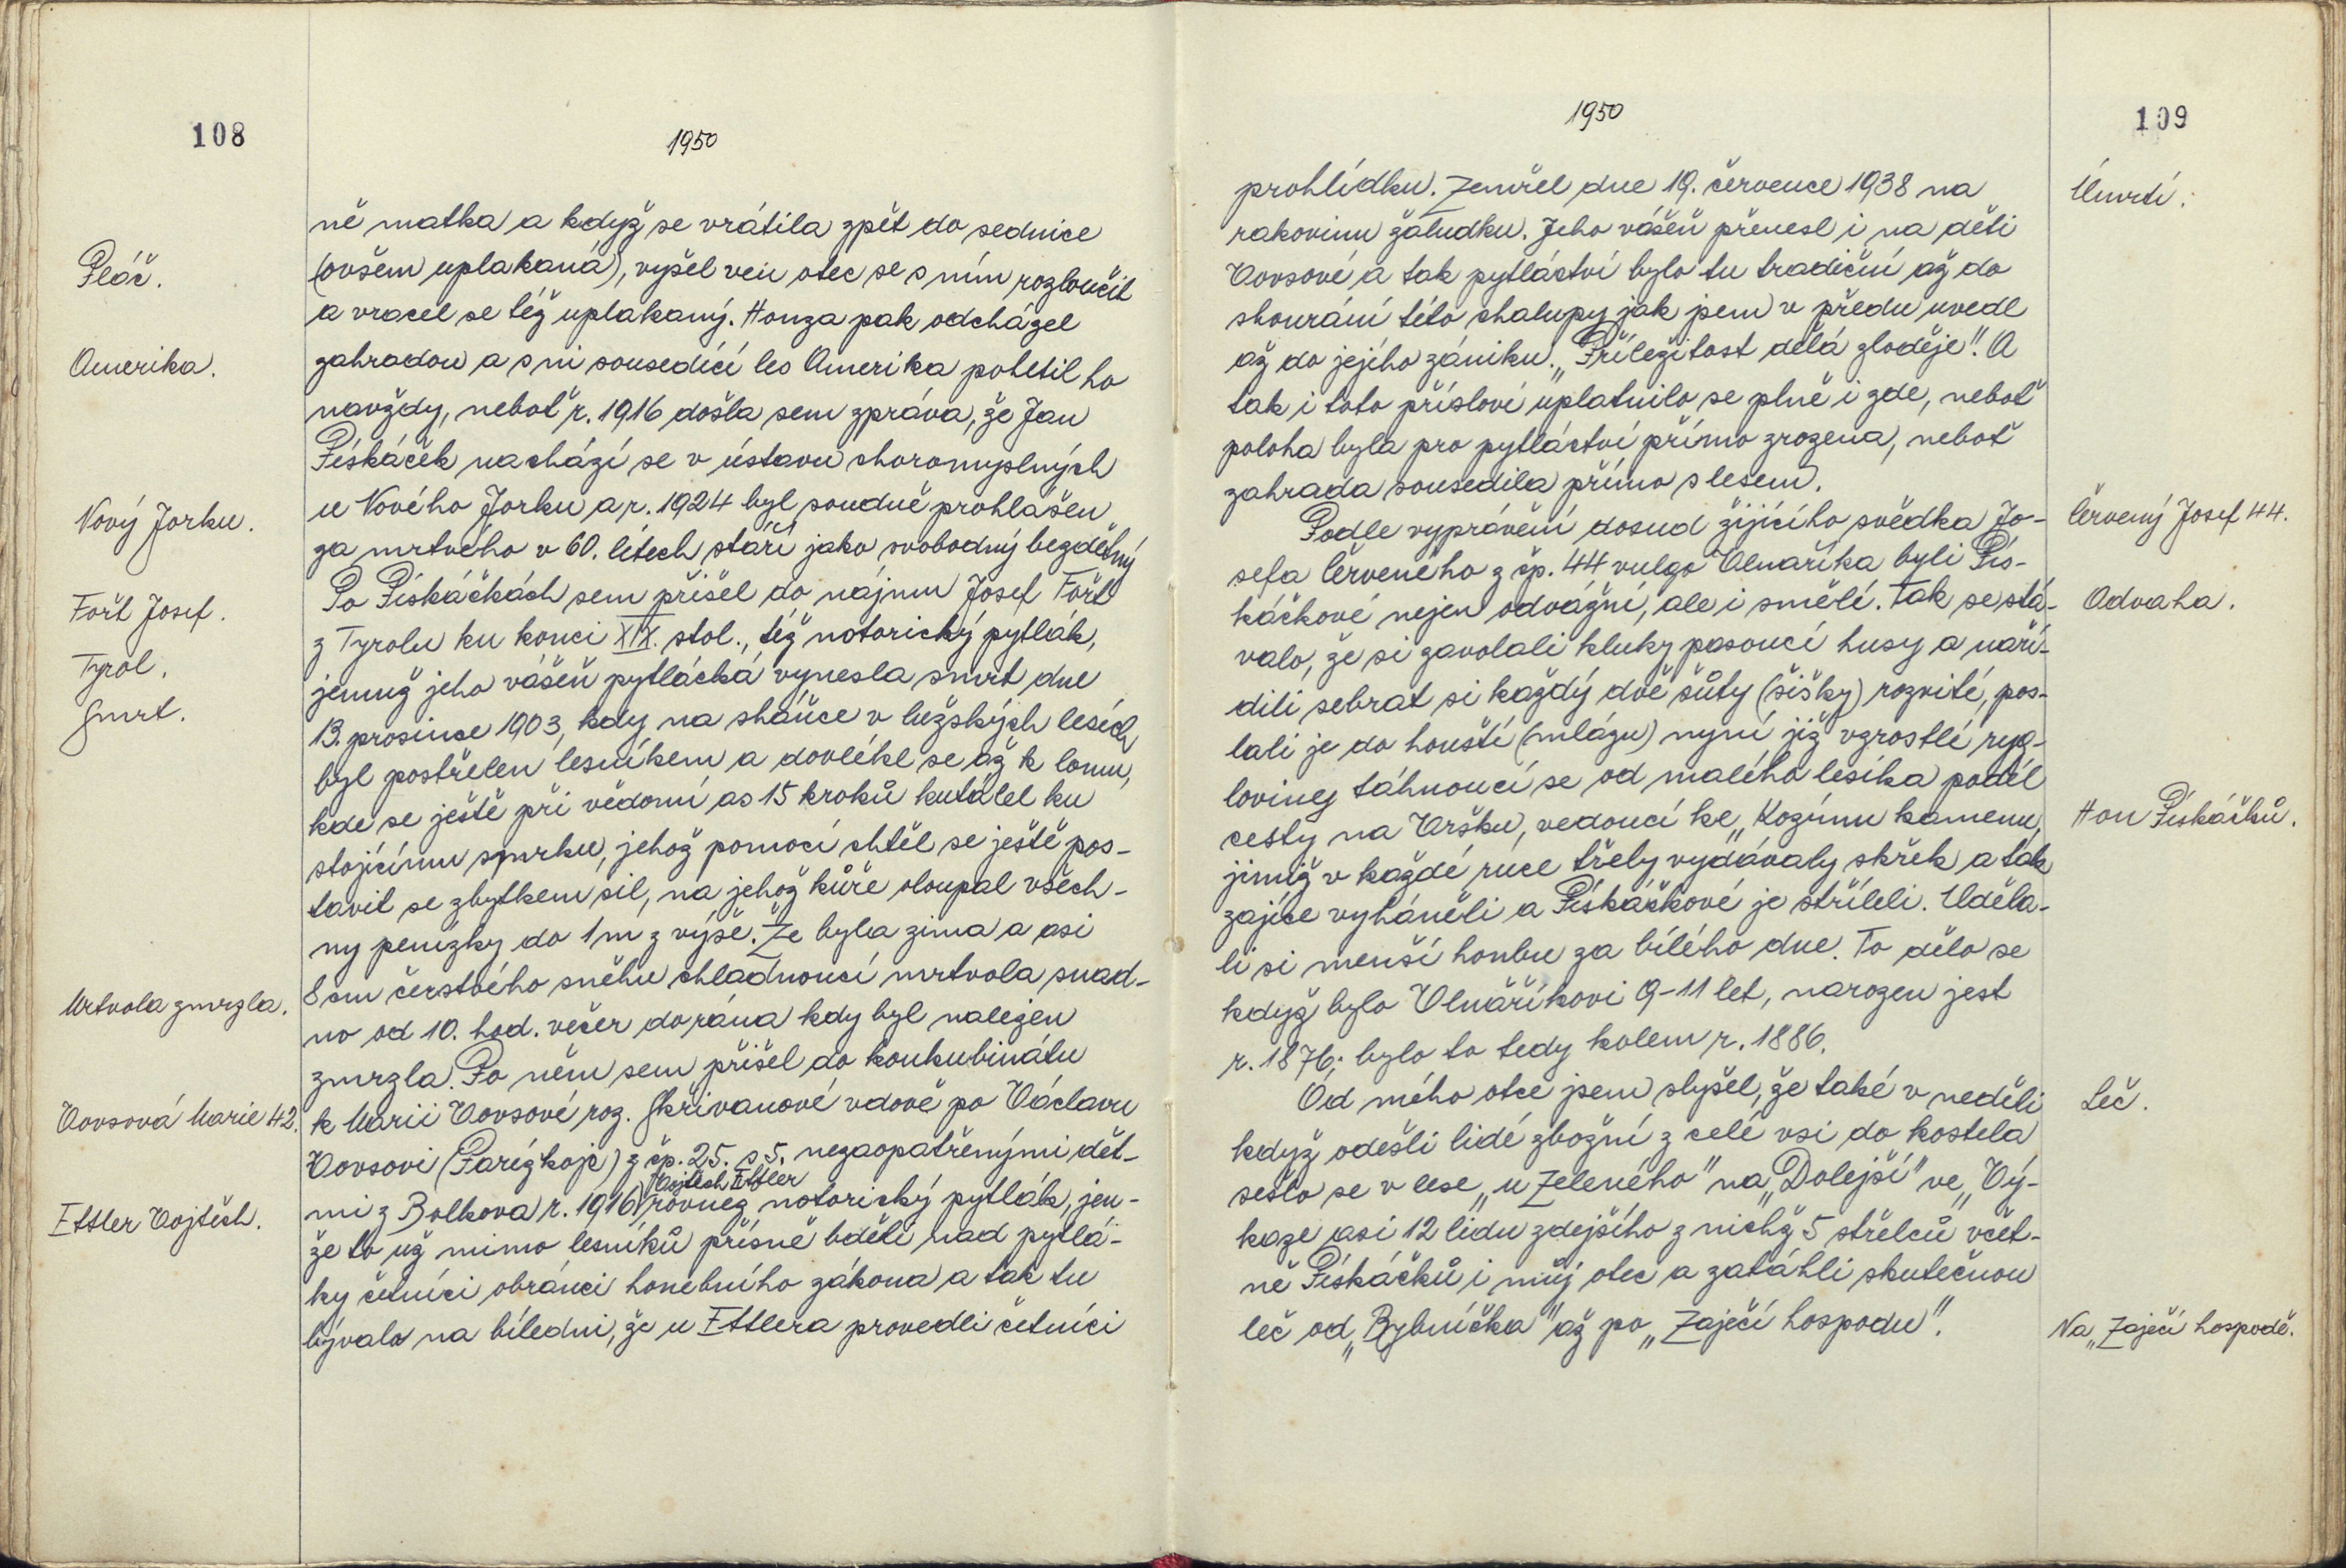 108
1950
ně matka a když se vrátila zpět do sednice
Pláč.
(ovšem uplakaná), vyšel ven otec se s ním rozloučit
a vracel se též uplakaný. Honza pak odcházel
Amerika.
zahradou a s ní sousedící les Amerika pohltil ho
navždy, neboť r. 1916 došla sem zpráva, že Jan
Pískáček nachází se v ústavu choromyslných
Nový Jorku.
u Nového Jorku a r. 1924 byl soudně prohlášen
za mrtvého v 60. létech stáří jako svobodný bezdětný
Fořt Josef.
Po Pískáčkách sem přišel do nájmu Josef Fořt
Tyrol.
z Tyrolu ku konci XIX. stol., též notorický pytlák,
Smrt.
jemuž jeho vášeň pytlácká vynesla smrt dne
13. prosince 1903, kdy na sháňce v lužských lesích
byl postřelen lesníkem a dovlékl se až k lomu,
kde se ještě při vědomí as 15 kroků kutálel ku
stojícímu smrku, jehož pomocí chtěl se ještě pos-
tavit se zbytkem sil, na jehož kůře oloupal všech-
ny penízky do 1 m z výše. Že byla zima a asi
Mrtvola zmrzla.
8 cm čerstvého sněhu chladnoucí mrtvola snad-
no od 10. hod. večer do rána kdy byl nalezen
zmrzla. Po něm sem přišel do konkubinátu
Vovsová Marie 42.
k Marii Vovsové roz. Skřivanové vdově po Václavu
Vovsovi (Parízkoje) z čp. 25. s 5. nezaopatřenými dět-
Vojtěch Ettler
Ettler Vojtěch.
mi z Bolkova r. 1916 rovněž notorický pytlák, jen-
že to už mimo lesníků přísně bděli nad pytlá-
ky četníci obránci honebního zákona a tak tu
bývalo na bíledni, že u Ettlera provedli četníci
1950
109
prohlídku. Zemřel dne 19. července 1938 na
Úmrtí.
rakovinu žaludku. Jeho vášeň přenesl i na děti
Vovsové a tak pytláctví bylo tu tradiční až do
shourání této chalupy jak jsem v předu uvedl
až do jejího zániku. „Příležitost dělá zloděje". A
tak i toto přísloví uplatnilo se plně i zde, neboť
poloha byla pro pytláctví přímo zrozena, neboť
zahrada sousedila přímo s lesem.
Podle vyprávění dosud žijícího svědka Jo-
Červený Josef 44.
sefa Červeného z čp. 44 vulgo Vlnaříka byli Pís-
káčkové nejen odvážní, ale i smělí. Tak se stá-
Odvaha.
valo, že si zavolali kluky pasoucí husy a naří-
dili sebrat si každý dvě šůty (šišky) rozvité, pos-
lali je do houští (mlázu) nyní již vzrostlé ryg-
loviney táhnoucí se od malého lesíka podél
cesty na Vršku, vedoucí ke „Kozímu kamenu,
Hon Pískáčků.
jimiž v každé ruce třely vydávaly skřek a tak
zajíce vyháněli a Pískáčkové je stříleli. Uděla-
li si menší honbu za bílého dne. To dělo se
když bylo Vlnaříkovi 9-11 let, narozen jest
r. 1876; bylo to tedy kolem r. 1886.
Od mého otce jsem slyšel, že také v neděli
Leč.
když odešli lidé zbožní z celé vsi do kostela
sešlo se v lese „u Zeleného" na „Dolejší" ve „Vý-
kaze asi 12 lidu zdejšího z nichž 5 střelců včet-
ně Pískáčků i můj otec a zatáhli skutečnou
leč od „Rybníčka" až po „Zaječí hospodu".
Na „Zaječí hospodě.